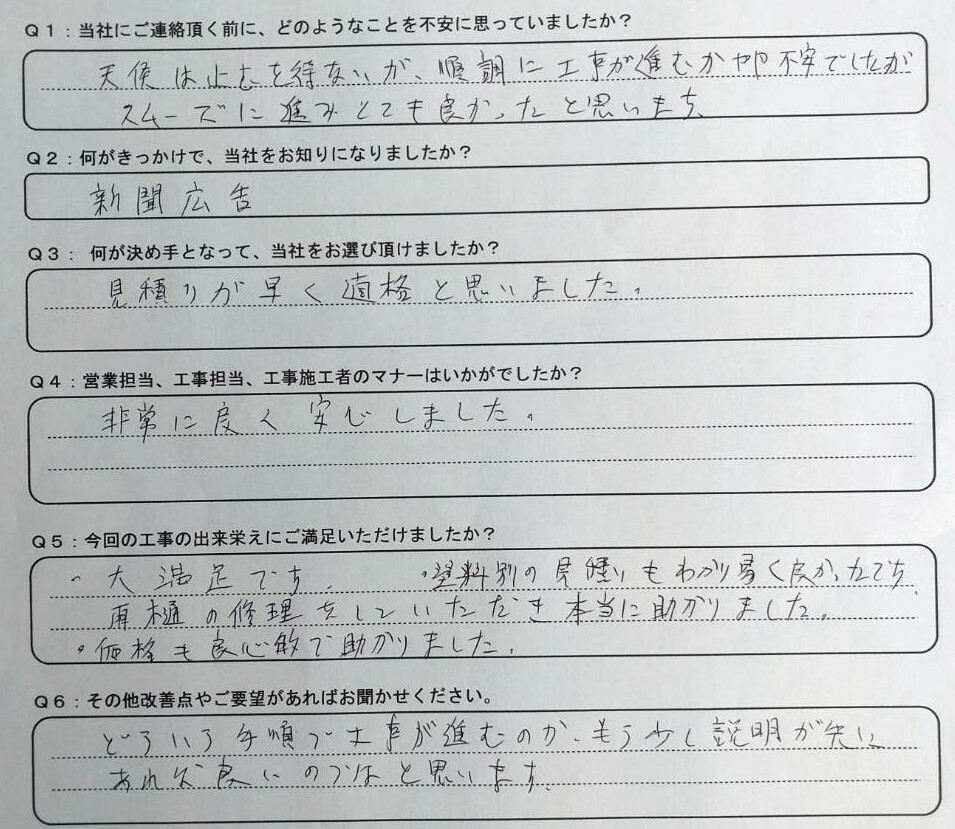 Q1：当社にご連絡頂く前に、どのようなことを不安に思っていましたか？
天候は止むを得ないが、順調に工事が進むかやや不安でしたが
スムーズに進みとても良かったと思います。
Q2：何がきっかけで、当社をお知りになりましたか？
新聞広告
Q3： 何が決め手となって、当社をお選び頂けましたか？
見積りが早く適格と思いました。
Q4：営業担当、工事担当、工事施工者のマナーはいかがでしたか？
非常に良く安心しました。
Q5：今回の工事の出来栄えにご満足いただけましたか？
・大満足です ・塗料別の見積りもわかり易く良かったです。
雨樋の修理をしていただき本当に助かりました。
・価格も良心的で助かりました。
Q6：その他改善点やご要望があればお聞かせください。
どういう手順で工事が進むのか、もう少し説明が先に
あれば良いのではと思います。